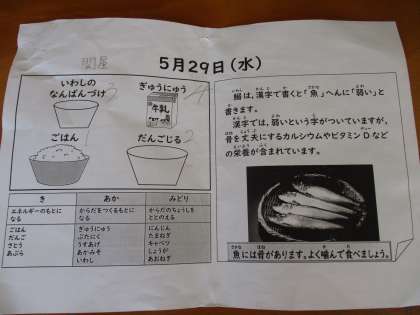 関屋
5月29日(水)
いわしの
なんばんづけ
ぎゅうにゅう
牛乳
ごはん
だんごじる
鰯は、漢字で書くと「魚」へんに「弱い」と
書きます。
漢字では、弱いという字がついていますが、
骨を丈夫にするカルシウムやビタミンDなど
の栄養が含まれています。
魚には骨があります。よく噛んで食べましょう。
き あか みどり
エネルギーのもとに
なる
からだをつくるもとに
なる
からだのちょうしを
ととのえる
ごはん
だんご
さとう
あぶら
ぎゅうにゅう
ぶたにく
うすあげ
あかみそ
いわし
にんじん
たまねぎ
キャベツ
しょうが
あおねぎ